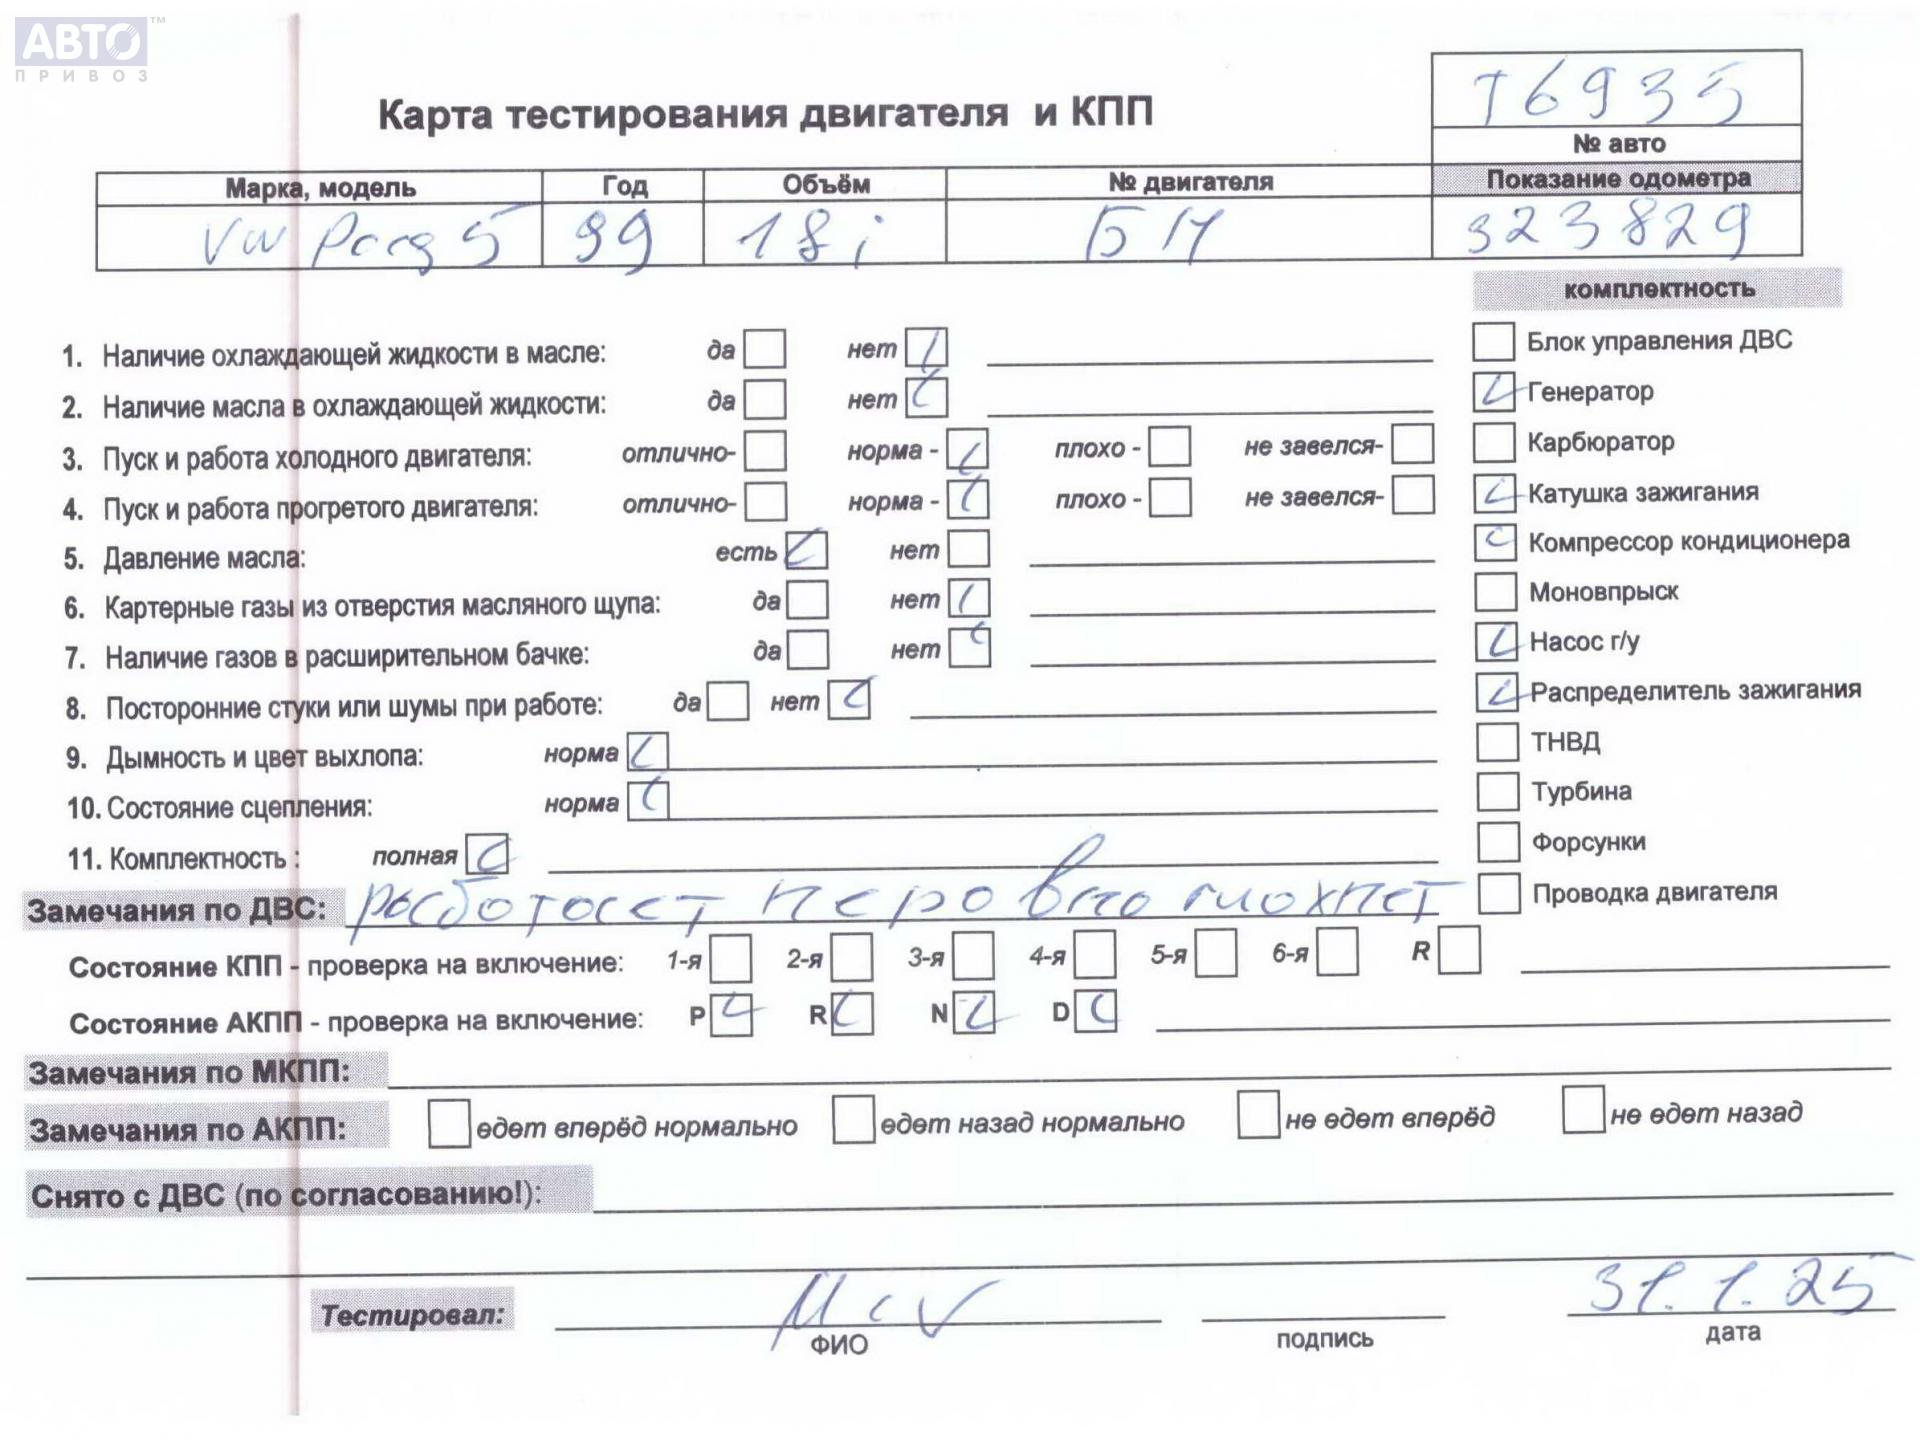 АВТО™
ПРИВОЗ
Т6935
Карта тестирования двигателя и КПП
№ авто
Марка, модель Год Объём № двигателя Показание одометра
VW 5 99 18i БН 323829
комплектность
1. Наличие охлаждающей жидкости в масле: да нет
Блок управления ДВС
2. Наличие масла в охлаждающей жидкости: да нет
Генератор
3. Пуск и работа холодного двигателя: отлично- норма - плохо - не завелся-
Карбюратор
4. Пуск и работа прогретого двигателя: отлично- норма - плохо - не завелся-
Катушка зажигания
5. Давление масла: есть нет
Компрессор кондиционера
6. Картерные газы из отверстия масляного щупа: да нет
Моновпрыск
7. Наличие газов в расширительном бачке: да нет
Насос г/у
8. Посторонние стуки или шумы при работе: да нет
Распределитель зажигания
9. Дымность и цвет выхлопа: норма
ТНВД
10. Состояние сцепления: норма
Турбина
11. Комплектность : полная
Форсунки
Замечания по ДВС: работает неровно глохнет
Проводка двигателя
Состояние КПП - проверка на включение: 1-я 2-я 3-я 4-я 5-я 6-я R
Состояние АКПП - проверка на включение: P R N D
Замечания по МКПП:
Замечания по АКПП: едет вперёд нормально едет назад нормально не едет вперёд не едет назад
Снято с ДВС (по согласованию!):
Тестировал: 31.1.25
ФИО подпись дата